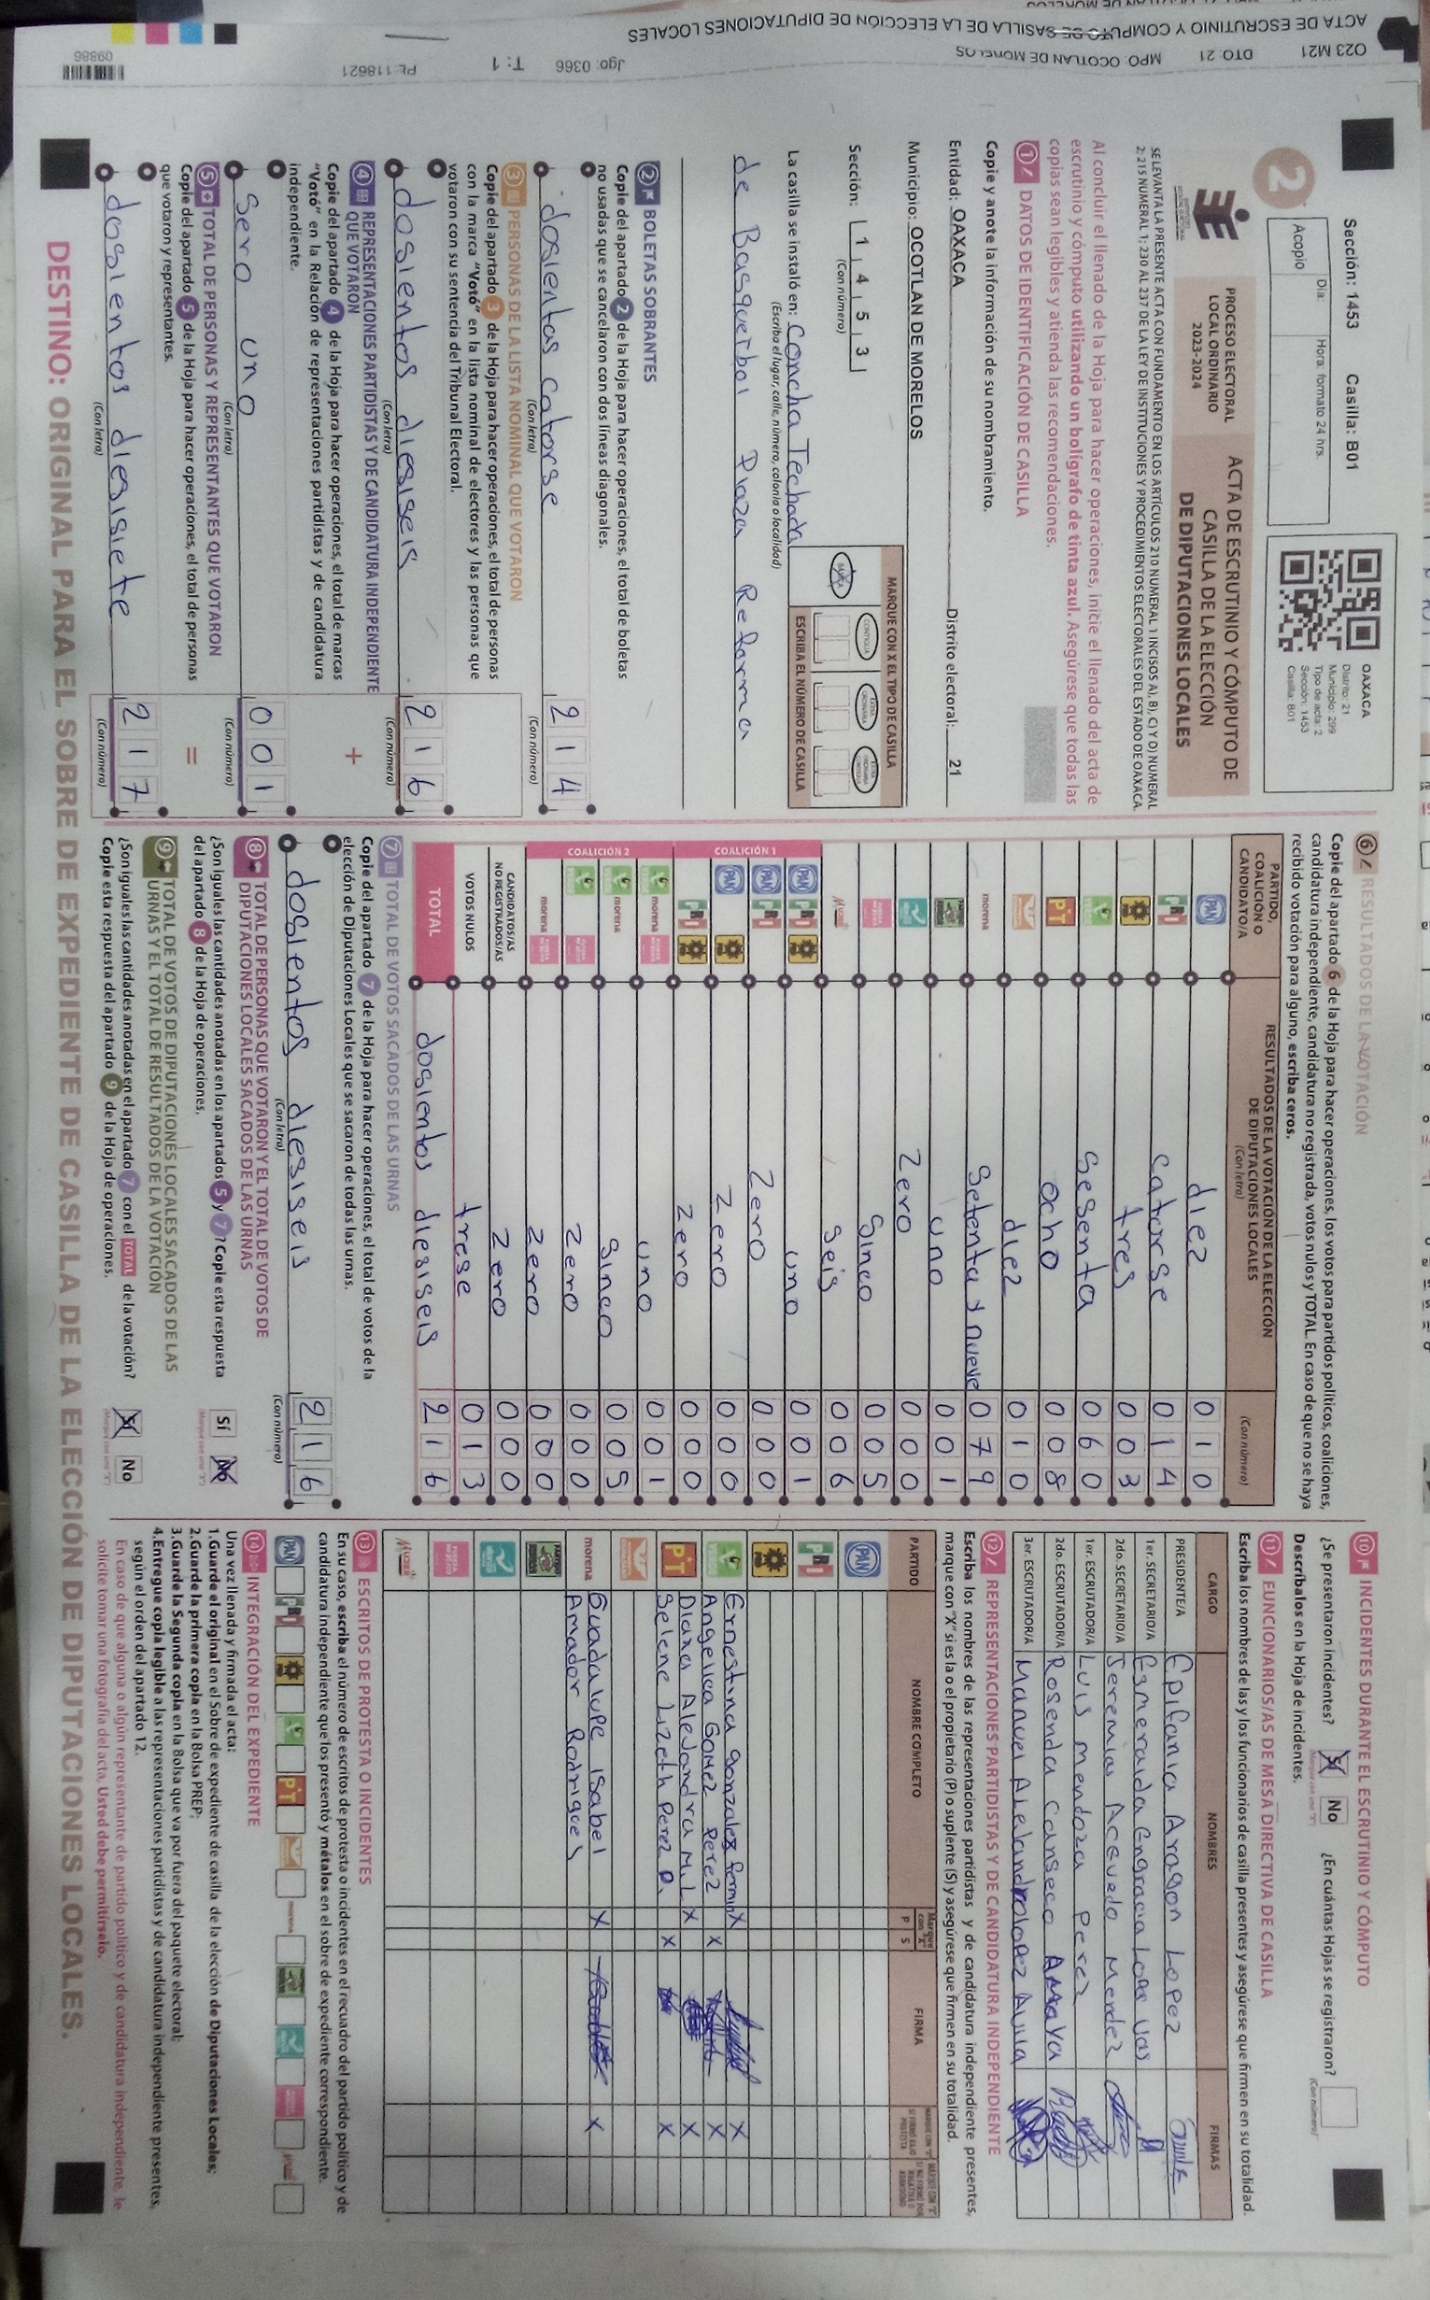 Sección: 1453 Casilla: B01
Día: Hora: formato 24 hrs.
Acopio
2
OAXACA
Distrito: 21
Municipio: 299
Tipo de acta: 2
Sección: 1453
Casilla: B01
PROCESO ELECTORAL
LOCAL ORDINARIO
2023-2024
ACTA DE ESCRUTINIO Y CÓMPUTO DE
CASILLA DE LA ELECCIÓN
DE DIPUTACIONES LOCALES
SE LEVANTA LA PRESENTE ACTA CON FUNDAMENTO EN LOS ARTÍCULOS 210 NUMERAL 1 INCISOS A), B), C) Y D) NUMERAL
2; 215 NUMERAL 1; 230 AL 237 DE LA LEY DE INSTITUCIONES Y PROCEDIMIENTOS ELECTORALES DEL ESTADO DE OAXACA.
Al concluir el llenado de la Hoja para hacer operaciones, inicie el llenado del acta de
escrutinio y cómputo utilizando un bolígrafo de tinta azul. Asegúrese que todas las
copias sean legibles y atienda las recomendaciones.
1 DATOS DE IDENTIFICACIÓN DE CASILLA
Copie y anote la información de su nombramiento.
Entidad: OAXACA Distrito electoral: 21
Municipio: OCOTLAN DE MORELOS
Sección: 1 4 5 3
(Con número)
MARQUE CON X EL TIPO DE CASILLA
BÁSICA CONTIGUA
ESCRIBA EL NÚMERO DE CASILLA
La casilla se instaló en: Concha Techada
(Escriba el lugar, calle, número, colonia o localidad)
de Basquerbol Plaza Reforma
2 BOLETAS SOBRANTES
Copie del apartado 2 de la Hoja para hacer operaciones, el total de boletas
no usadas que se cancelaron con dos líneas diagonales.
dosientas catorse 2 1 4
(Con letra) (Con número)
3 PERSONAS DE LA LISTA NOMINAL QUE VOTARON
Copie del apartado 3 de la Hoja para hacer operaciones, el total de personas
con la marca "Votó" en la lista nominal de electores y las personas que
votaron con su sentencia del Tribunal Electoral.
dosientos diesiseis 2 1 6
(Con letra) (Con número)
4 REPRESENTACIONES PARTIDISTAS Y DE CANDIDATURA INDEPENDIENTE
QUE VOTARON
Copie del apartado 4 de la Hoja para hacer operaciones, el total de marcas
"Votó" en la Relación de representaciones partidistas y de candidatura
independiente.
+
Sero uno 0 0 1
(Con letra) (Con número)
5 TOTAL DE PERSONAS Y REPRESENTANTES QUE VOTARON
Copie del apartado 5 de la Hoja para hacer operaciones, el total de personas
que votaron y representantes.
=
dosientos diesisiete 2 1 7
(Con letra) (Con número)
6 RESULTADOS DE LA VOTACIÓN
Copie del apartado 6 de la Hoja para hacer operaciones, los votos para partidos políticos, coaliciones,
candidatura independiente, candidatura no registrada, votos nulos y TOTAL. En caso de que no se haya
recibido votación para alguno, escriba ceros.
PARTIDO,
COALICIÓN O
CANDIDATO/A
RESULTADOS DE LA VOTACIÓN DE LA ELECCIÓN
DE DIPUTACIONES LOCALES
(Con letra) (Con número)
PAN diez 0 1 0
PRI catorse 0 1 4
tres 0 0 3
Sesenta 0 6 0
PT ocho 0 0 8
diez 0 1 0
morena Setenta y nueve 0 7 9
uno 0 0 1
Zero 0 0 0
Sinco 0 0 5
Seis 0 0 6
COALICIÓN 1
PAN PRI uno 0 0 1
PAN PRI Zero 0 0 0
PAN Zero 0 0 0
PRI Zero 0 0 0
COALICIÓN 2
morena uno 0 0 1
morena Sinco 0 0 5
Zero 0 0 0
morena Zero 0 0 0
CANDIDATOS/AS
NO REGISTRADOS/AS Zero 0 0 0
VOTOS NULOS trese 0 1 3
TOTAL dosientos diesiseis 2 1 6
7 TOTAL DE VOTOS SACADOS DE LAS URNAS
Copie del apartado 7 de la Hoja para hacer operaciones, el total de votos de la
elección de Diputaciones Locales que se sacaron de todas las urnas.
dosientos diesiseis 2 1 6
(Con letra) (Con número)
8 TOTAL DE PERSONAS QUE VOTARON Y EL TOTAL DE VOTOS DE
DIPUTACIONES LOCALES SACADOS DE LAS URNAS
¿Son iguales las cantidades anotadas en los apartados 5 y 7? Copie esta respuesta
del apartado 8 de la Hoja de operaciones.
Sí No
9 TOTAL DE VOTOS DE DIPUTACIONES LOCALES SACADOS DE LAS
URNAS Y EL TOTAL DE RESULTADOS DE LA VOTACIÓN
¿Son iguales las cantidades anotadas en el apartado 7 con el TOTAL de la votación?
Copie esta respuesta del apartado 9 de la Hoja de operaciones.
Sí No
10 INCIDENTES DURANTE EL ESCRUTINIO Y CÓMPUTO
¿Se presentaron incidentes? Sí No ¿En cuántas Hojas se registraron?
(Con número)
Descríbalos en la Hoja de incidentes.
11 FUNCIONARIOS/AS DE MESA DIRECTIVA DE CASILLA
Escriba los nombres de las y los funcionarios de casilla presentes y asegúrese que firmen en su totalidad.
CARGO NOMBRES FIRMAS
PRESIDENTE/A Epifania Aragon Lopez
1er. SECRETARIO/A Esmeralda Engracia Lopez Vas
2do. SECRETARIO/A Jeremias Acevedo Mendez
1er. ESCRUTADOR/A Luis Mendoza Perez
2do. ESCRUTADOR/A Rosenda Canseco Amaya
3er. ESCRUTADOR/A Manuel Alejandro Lopez Avila
12 REPRESENTACIONES PARTIDISTAS Y DE CANDIDATURA INDEPENDIENTE
Escriba los nombres de las representaciones partidistas y de candidatura independiente presentes,
marque con "X" si es la o el propietario (P) o suplente (S) y asegúrese que firmen en su totalidad.
PARTIDO NOMBRE COMPLETO Marque con "X" P S FIRMA
PAN
PRI
Ernestina Gonzales Fermin X X
Angelica Gomez Perez X X
PT Diana Alejandra M. L X X
Selene Lizeth Perez P. X X
morena Guadalupe Isabel X X
Amador Rodrigues
13 ESCRITOS DE PROTESTA O INCIDENTES
En su caso, escriba el número de escritos de protesta o incidentes en el recuadro del partido político y de
candidatura independiente que los presentó y métalos en el sobre de expediente correspondiente.
PAN PRI PT morena
14 INTEGRACIÓN DEL EXPEDIENTE
Una vez llenada y firmada el acta:
1.Guarde el original en el Sobre de expediente de casilla de la elección de Diputaciones Locales;
2.Guarde la primera copia en la Bolsa PREP;
3.Guarde la Segunda copia en la Bolsa que va por fuera del paquete electoral;
4.Entregue copia legible a las representaciones partidistas y de candidatura independiente presentes,
según el orden del apartado 12.
En caso de que alguna o algún representante de partido político y de candidatura independiente, le
solicite tomar una fotografía del acta, Usted debe permitírselo.
DESTINO: ORIGINAL PARA EL SOBRE DE EXPEDIENTE DE CASILLA DE LA ELECCIÓN DE DIPUTACIONES LOCALES.
O23 M21 DTO: 21 MPO: OCOTLAN DE MORELOS
ACTA DE ESCRUTINIO Y COMPUTO DE CASILLA DE LA ELECCIÓN DE DIPUTACIONES LOCALES
Jgo: 0366 T: 1 PL: 118621
09886